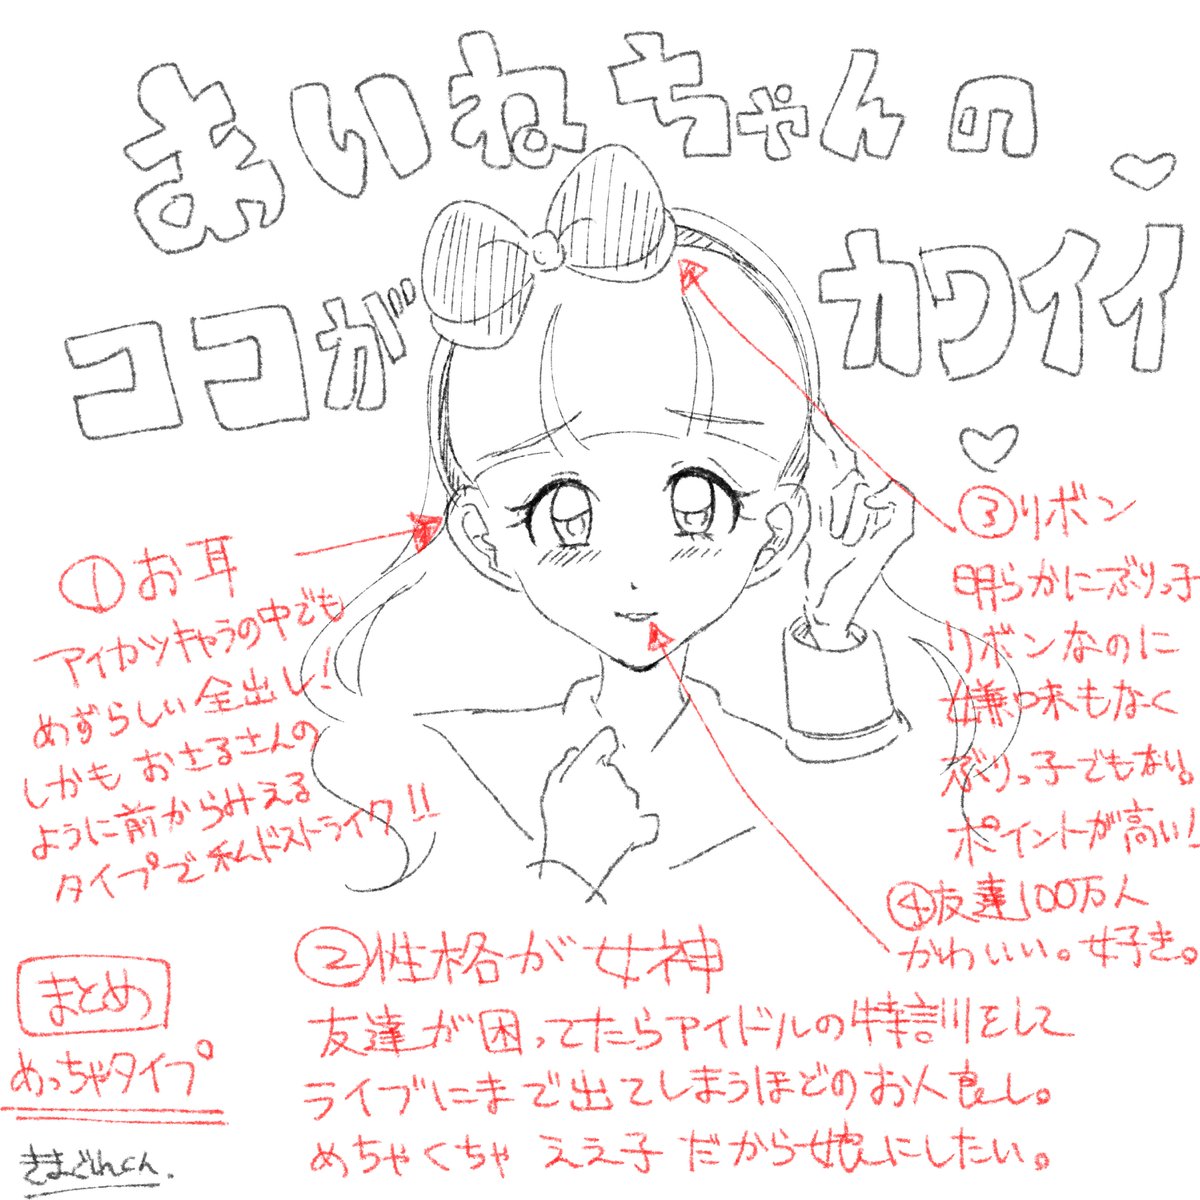 まいねちゃんの
ココがカワイイ
①お耳
アイカツキャラの中でも
めずらしい全出し!
しかもおさるさんの
ように前からみえる
タイプで私ドストライク!!
③リボン
明らかにぶりっ子
リボンなのに
嫌味もなく
ぶりっ子でもない。
ポイントが高い!
④友達100万人
かわいい。好き。
②性格が女神
友達が困ってたらアイドルの特訓をして
ライブにまで出てしまうほどのお人良し。
めちゃくちゃええ子だから娘にしたい。
まとめ
めっちゃタイプ
きまぐれくん.